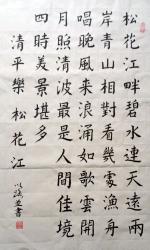 松花江畔碧水連天遠兩
岸青山相對看幾處漁舟
唱晚風來浪涌如歌雲開
月照清波最是人間佳境
四時美景堪多
清平樂 松花江